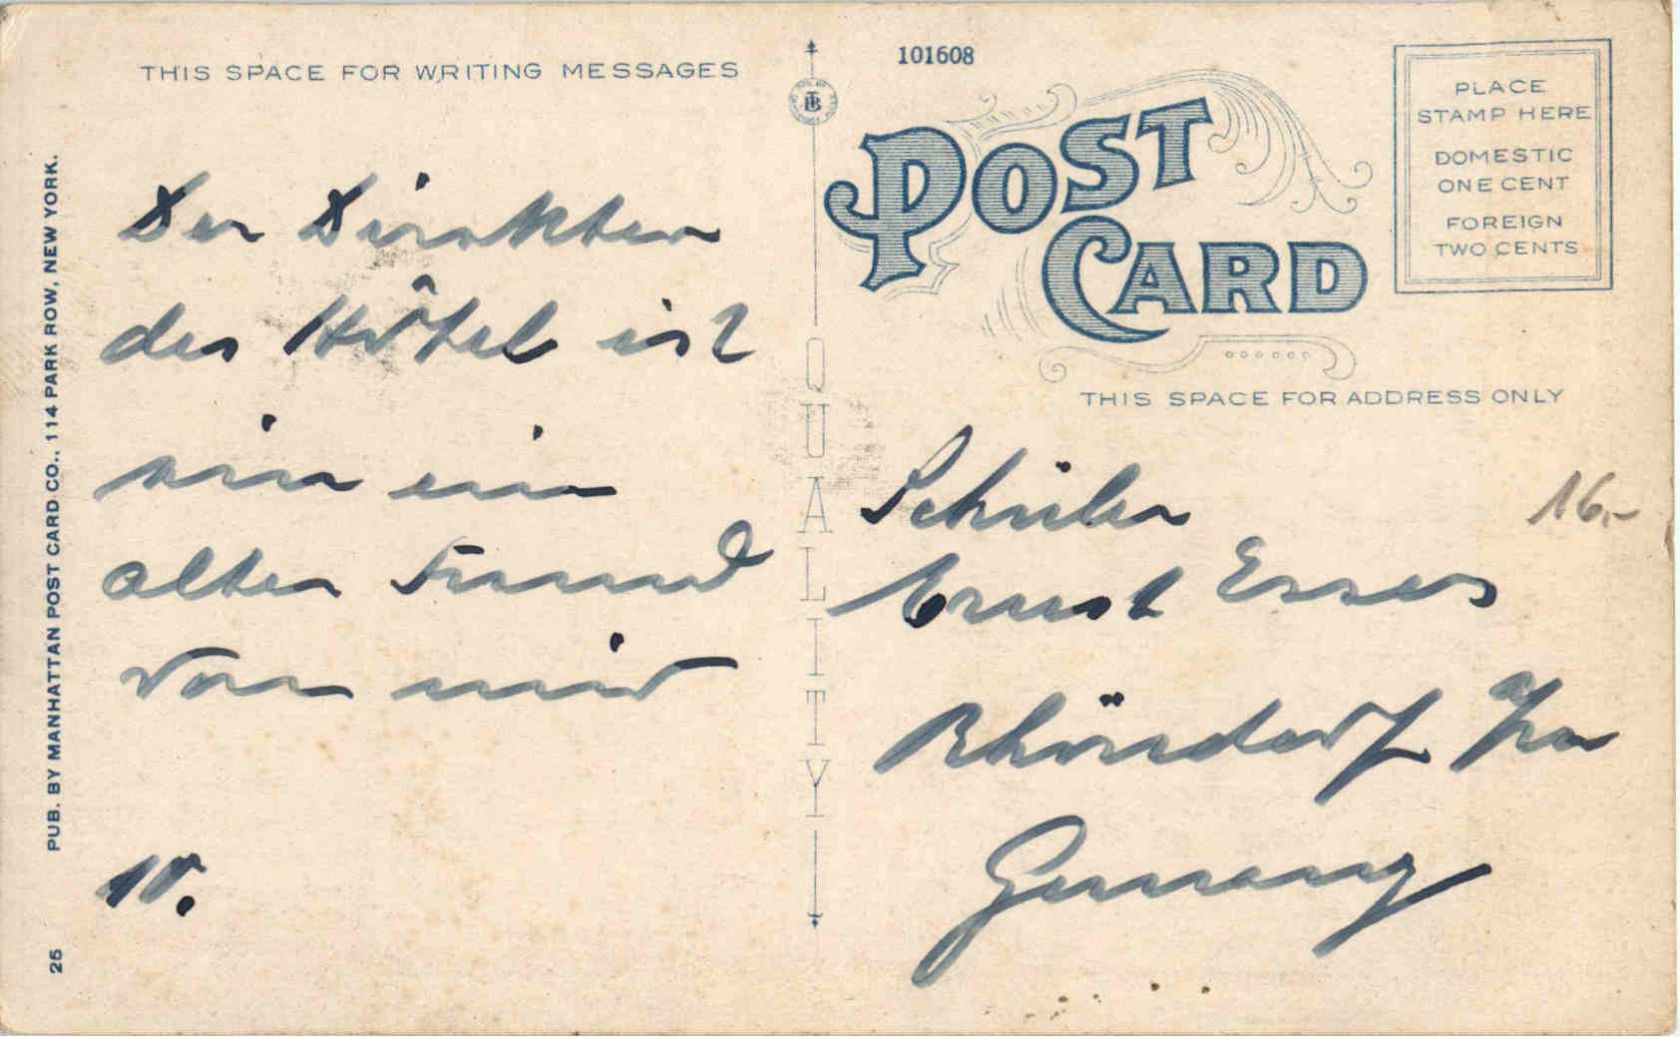 THIS SPACE FOR WRITING MESSAGES
Der Direktor
des Hôtel ist
ein
alter Freund
von mir
10.
PUB. BY MANHATTAN POST CARD CO., 114 PARK ROW, NEW YORK.
26
QUALITY
101608
POST
CARD
PLACE
STAMP HERE
DOMESTIC
ONE CENT
FOREIGN
TWO CENTS
THIS SPACE FOR ADDRESS ONLY
Schüler
16.-
Ernst Esser
Rhöndorf
Germany